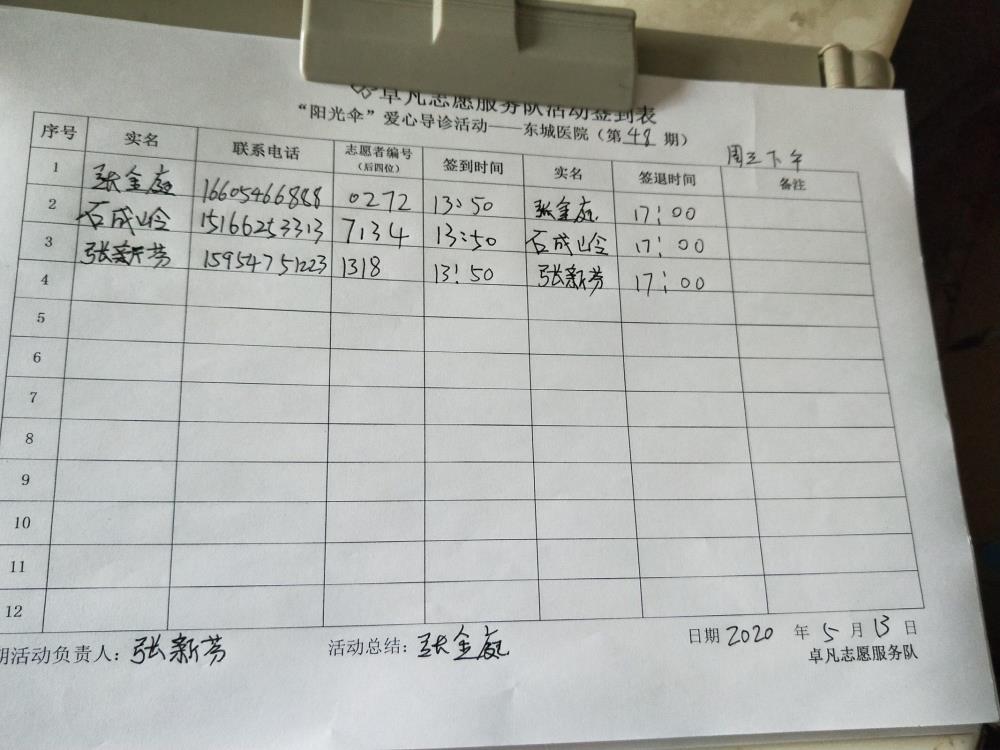 卓凡志愿服务队活动签到表
“阳光伞”爱心导诊活动——东城医院（第48期）
周三下午
序号 实名 联系电话 志愿者编号（后四位） 签到时间 实名 签退时间 备注
1 张金庭 16605466888 0272 13:50 张金庭 17:00
2 石成岭 15166253313 7134 13:50 石成岭 17:00
3 张新芳 15954751223 1318 13:50 张新芳 17:00
4
5
6
7
8
9
10
11
12
期活动负责人：张新芳 活动总结：张金庭 日期 2020 年 5 月 13 日
卓凡志愿服务队